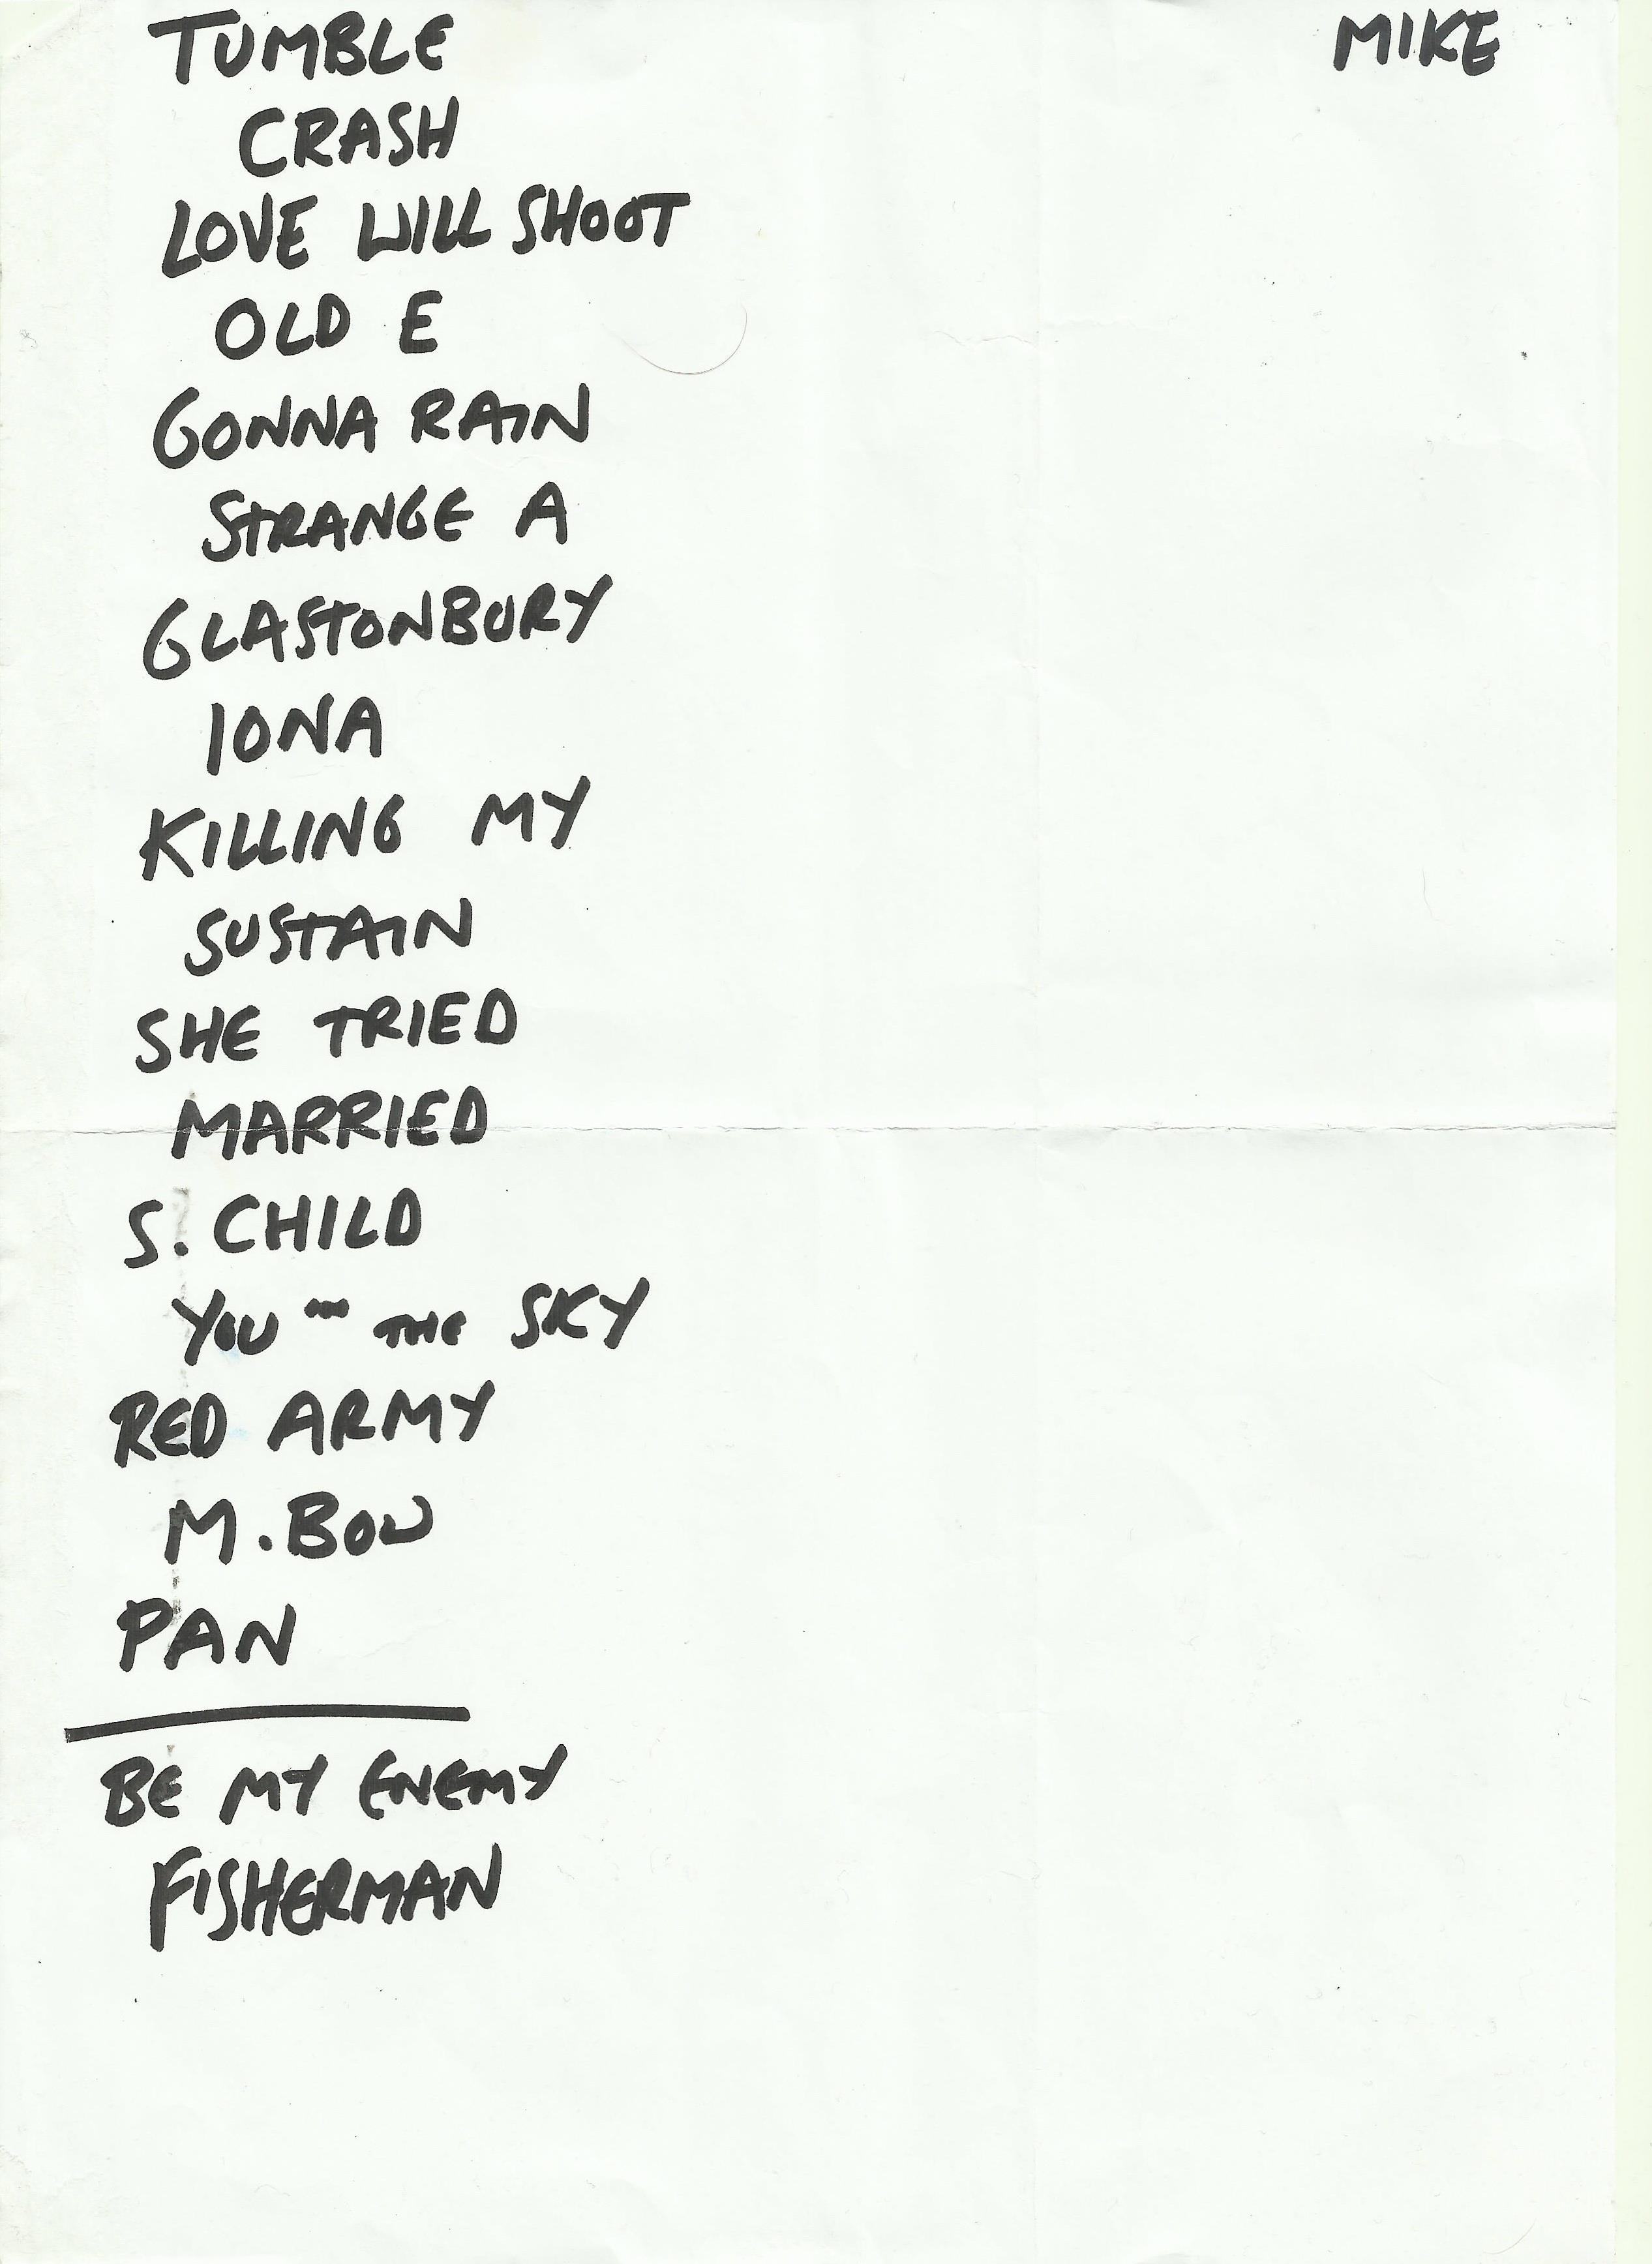 TUMBLE
MIKE
CRASH
LOVE WILL SHOOT
OLD E
GONNA RAIN
STRANGE A
GLASTONBURY
IONA
KILLING MY
SUSTAIN
SHE TRIED
MARRIED
S. CHILD
YOU ~ THE SKY
RED ARMY
M. BOW
PAN
BE MY ENEMY
FISHERMAN